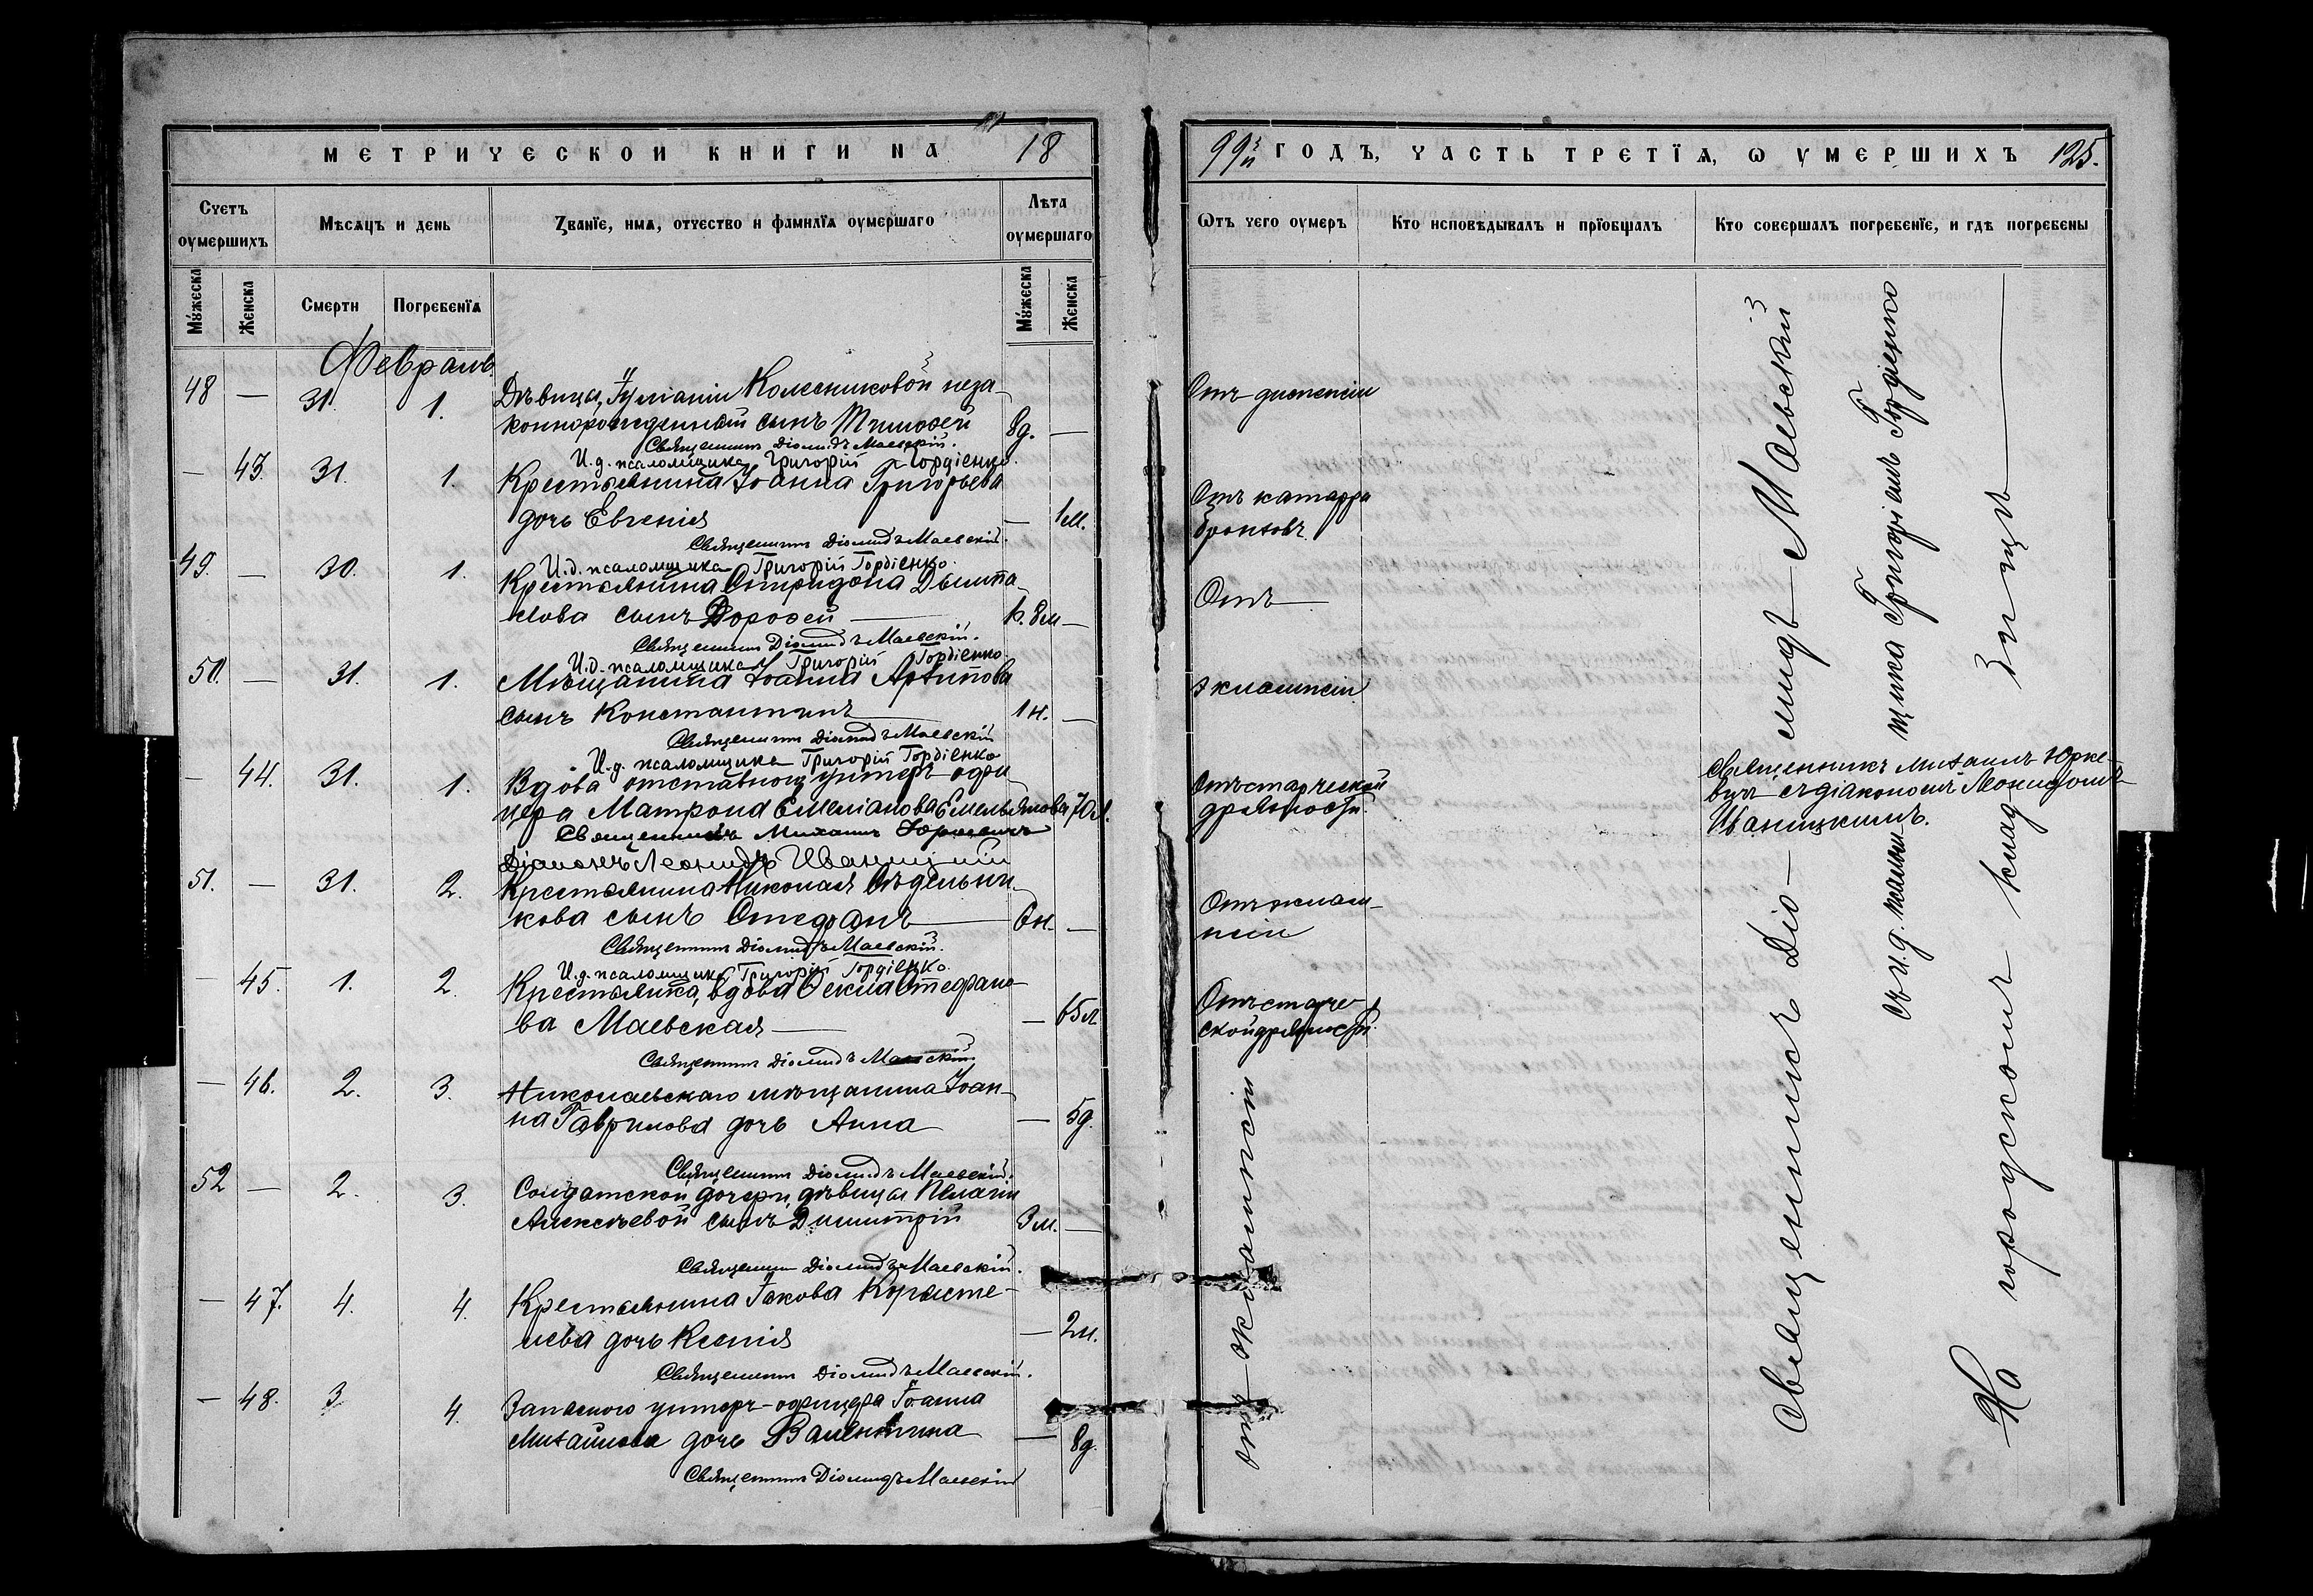 МЕТРИЧЕСКОЙ КНИГИ НА 18
Счетъ оумершихъ
Мѣсяцъ и день
Званїе, имя, отчество и фамилїя оумершаго
Лѣта оумершаго
Мужеска
Женска
Смерти
Погребенїя
Мужеска
Женска
Февраль
48 — 31. 1. Дѣвицы, Іуліаніи Колесниковой неза-
коннорожденный сынъ Тимоѳей 8д. —
Священникъ Діомидъ Маевскій.
И.д. псаломщика Григорій Гордіенко.
— 43. 31. 1. Крестьянина Іоанна Григорьева
дочь Евгенія — 1м.
Священникъ Діомидъ Маевскій.
И.д. псаломщика Григорій Гордіенко.
49. — 30. 1. Крестьянина Спиридона
сынъ Дороѳей —
Священникъ Діомидъ Маевскій.
И.д. псаломщика Григорій Гордіенко.
50. — 31. 1. Мѣщанина Іоанна Архипова
сынъ Константинъ 1н. —
Священникъ Діомидъ Маевскій
И.д. псаломщика Григорій Гордіенко
— 44. 31. 1. Вдова отставного унтеръ-офи-
цера Матрона Емеліанова Емельянова 70л.
Священникъ Михаилъ Юркевичъ
Діаконъ Леонидъ Иваницкій
51. — 31. 2. Крестьянина Николая Сѣдельни-
кова сынъ Стефанъ 6н. —
Священникъ Діомидъ Маевскій.
И.д. псаломщика Григорій Гордіенко.
— 45. 1. 2. Крестьянка, вдова Ѳекла Стефано-
ва Маевская — 65л.
Священникъ Діомидъ Маевскій
— 46. 2. 3. Николаевскаго мѣщанина Іоан-
на Гаврилова дочь Анна — 5д.
Священникъ Діомидъ Маевскій.
52 — 2. 3. Солдатской дочери, дѣвицы Пелагіи
Алексѣевой сынъ Димитрій 3м. —
Священникъ Діомидъ Маевскій.
— 47. 4. 4. Крестьянина Іакова
дочь Ксенія —
Священникъ Діомидъ Маевскій.
— 48. 3 4. Запасного унтеръ-офицера Іоанна
Михайлова дочь Валентина — 8д.
Священникъ Діомидъ Маевскій
99й ГОДЪ, ЧАСТЬ ТРЕТЇЯ, Ѡ УМЕРШИХЪ 125.
Ѡтъ чего оумеръ
Кто исповѣдывалъ и прїобщалъ
Кто совершалъ погребенїе, и гдѣ погребены
Отъ диспепсіи
Отъ катарра
бронховъ.
Отъ
эклампсіи
Отъ старческой
дряхлости.
Отъ эклам-
псіи
Отъ старче-
ской дряхлости.
отъ эклампсіи
Священникъ Михаилъ Юрке-
вичъ съ діакономъ Леонидомъ
Иваницкимъ.
Священникъ Діо-мидъ — Маевскій
съ и.д. псаломщика Григоріемъ Гордіенко
На городскомъ кладбищѣ